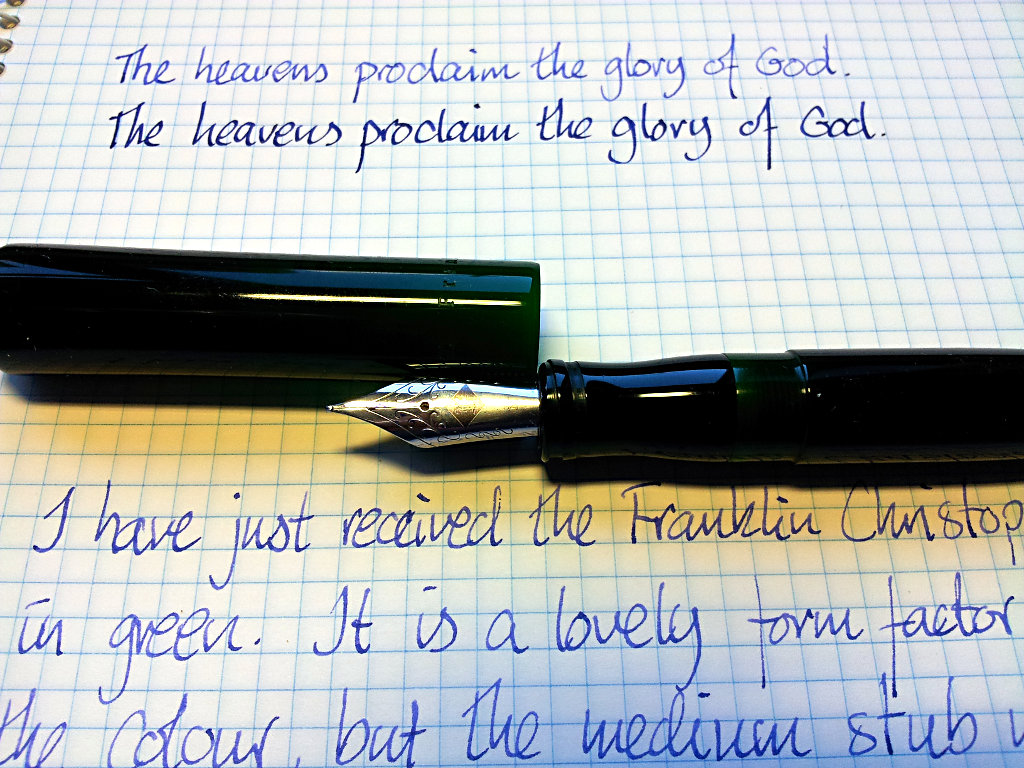 The heavens proclaim the glory of God.
The heavens proclaim the glory of God.
I have just received the Franklin Christop
in green. It is a lovely form factor
the colour, but the medium stub